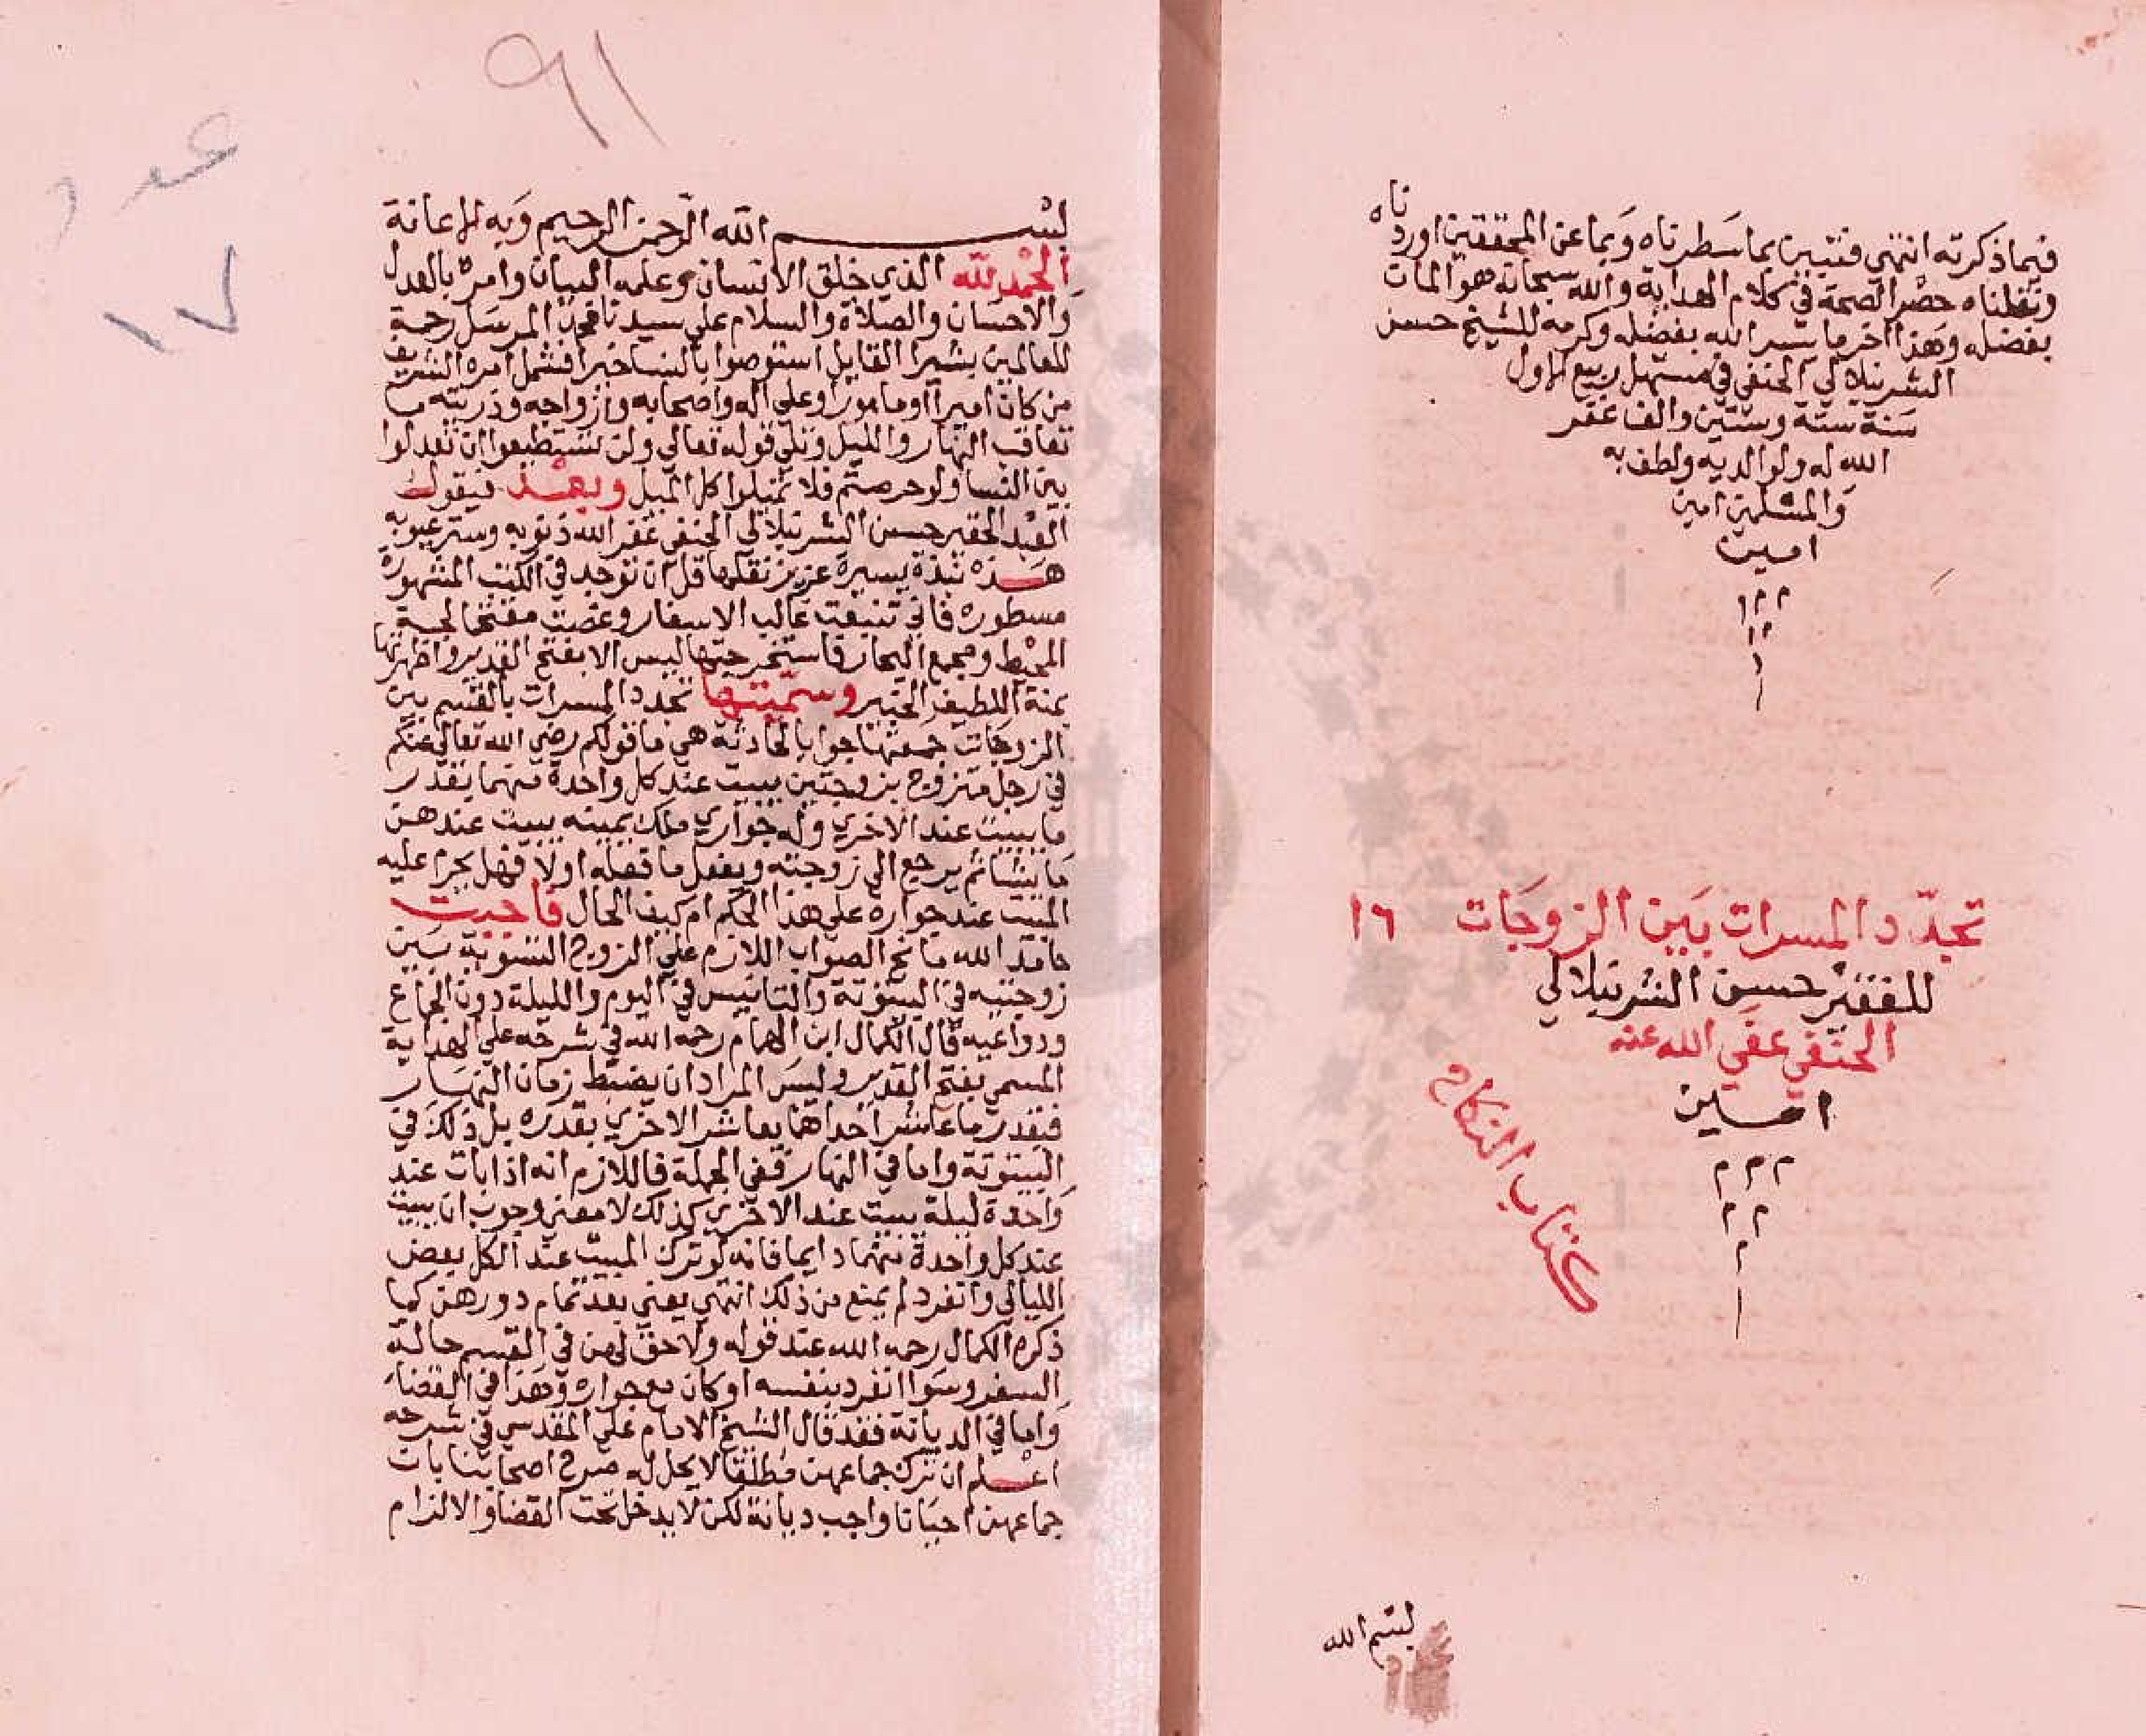 فيما ذكرته انتهي فتبين بما سطرناه وبما عن المحققين اوردناه
ونقلناه حصر الصحة في كلام الهداية والله سبحانه هو المان
بفضله وهذا اخر ما يسر الله بفضله وكرمه للشيخ حسن
الشرنبلالي الحنفي في مستهل ربيع الاول
سنة ستة وستين والف غفر
الله له ولوالديه ولطف به
والمسلمين امين
امين
تجدد المسرات بين الزوجات ١٦
للفقير حسن الشرنبلالي
الحنفي عفي الله عنه
امين
كتاب النكاح
بسم الله
٩١
عدد
١٧
بسم الله الرحمن الرحيم وبه الاعانة
الحمد لله الذي خلق الانسان وعلمه البيان وامره بالعدل
والاحسان والصلاة والسلام علي سيدنا محمد المرسل رحمة
للعالمين بشيرا القايل استوصوا بالنسا خيرا فشمل امره الشريف
من كان اميرا او مامورا وعلي اله واصحابه وازواجه وذريته ما
تعاقب النهار والليل وتلي قوله تعالي ولن تستطيعوا ان تعدلوا
بين النسا ولو حرصتم فلا تميلوا كل الميل وبعد فيقول
العبد الحقير حسن الشرنبلالي الحنفي غفر الله ذنوبه وستر عيوبه
هذه نبذة يسيرة عزيز نقلها قل ان توجد في الكتب المشهورة
مسطوره فاني تتبعت غالب الاسفار وغصت مقتحما لجة
المحيط ومجمع البحار فاستخرجتها ليس الا بفتح القدير واظهرتها
بمنة اللطيف الخبير وسميتها تجدد المسرات بالقسم بين
الزوجات جمعتها جوابا لحادثة هي ما قولكم رضي الله تعالي عنكم
في رجل متزوج بزوجتين يبيت عند كل واحدة منهما بقدر
ما يبيت عند الاخري وله جواري ملك يمينه يبيت عندهن
ما يشا ثم يرجع الي زوجته ويفعل ما فعله اولا فهل يحرم عليه
المبيت عند جواره علي هذا الحكم ام كيف الحال فاجبت
حامدا لله مانح الصواب اللازم علي الزوج التسوية بين
زوجتيه في البيتوتة والتانيس في اليوم والليلة دون الجماع
ودواعيه قال الكمال ابن الهمام رحمه الله في شرحه علي الهداية
المسمي بفتح القدير وليس المراد ان يضبط زمان النهار
فبقدر ما عاشر احداهما يعاشر الاخري بقدره بل ذلك في
البيتوتة واما في النهار ففي الجملة فاللازم انه اذا بات عند
واحدة ليلة يبيت عند الاخري كذلك لا معني وجوب ان يبيت
عند كل واحدة منهما دايما فانه لو ترك المبيت عند الكل بعض
الليالي وانفرد لم يمنع من ذلك انتهي يعني بعد تمام دورهن كما
ذكره الكمال رحمه الله عند قوله ولا حق لهن في القسم حالة
السفر وسوا انفرد بنفسه او كان مع جواره وهذا في القضا
واما في الديانة فقد قال الشيخ الامام علي المقدسي في شرحه
اعلم ان ترك جماعهن مطلقا لا يحل له صرح اصحابنا بان
جماعهن احيانا واجب ديانة لكن لا يدخل تحت القضا والالزام